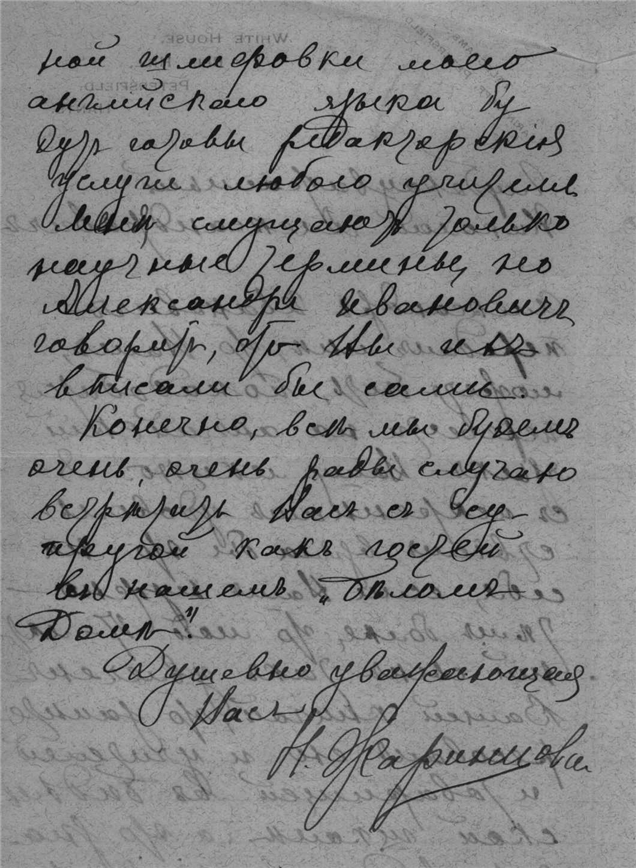 WHITE HOUSE.
PETERSFIELD
ной шлифовки моего
английскаго языка бу
дутъ готовы редакторскія
услуги любого учителя
Меня смущаютъ только
научные термины, но
Александръ Ивановичъ
говоритъ, что Вы ихъ
вписали бы сами.
Конечно, всѣ мы будемъ
очень, очень рады случаю
встрѣтить Васъ съ су-
пругой какъ гостей
въ нашемъ „Бѣломъ
Домѣ".
Душевно уважающая
Васъ
Н. Жаринцова